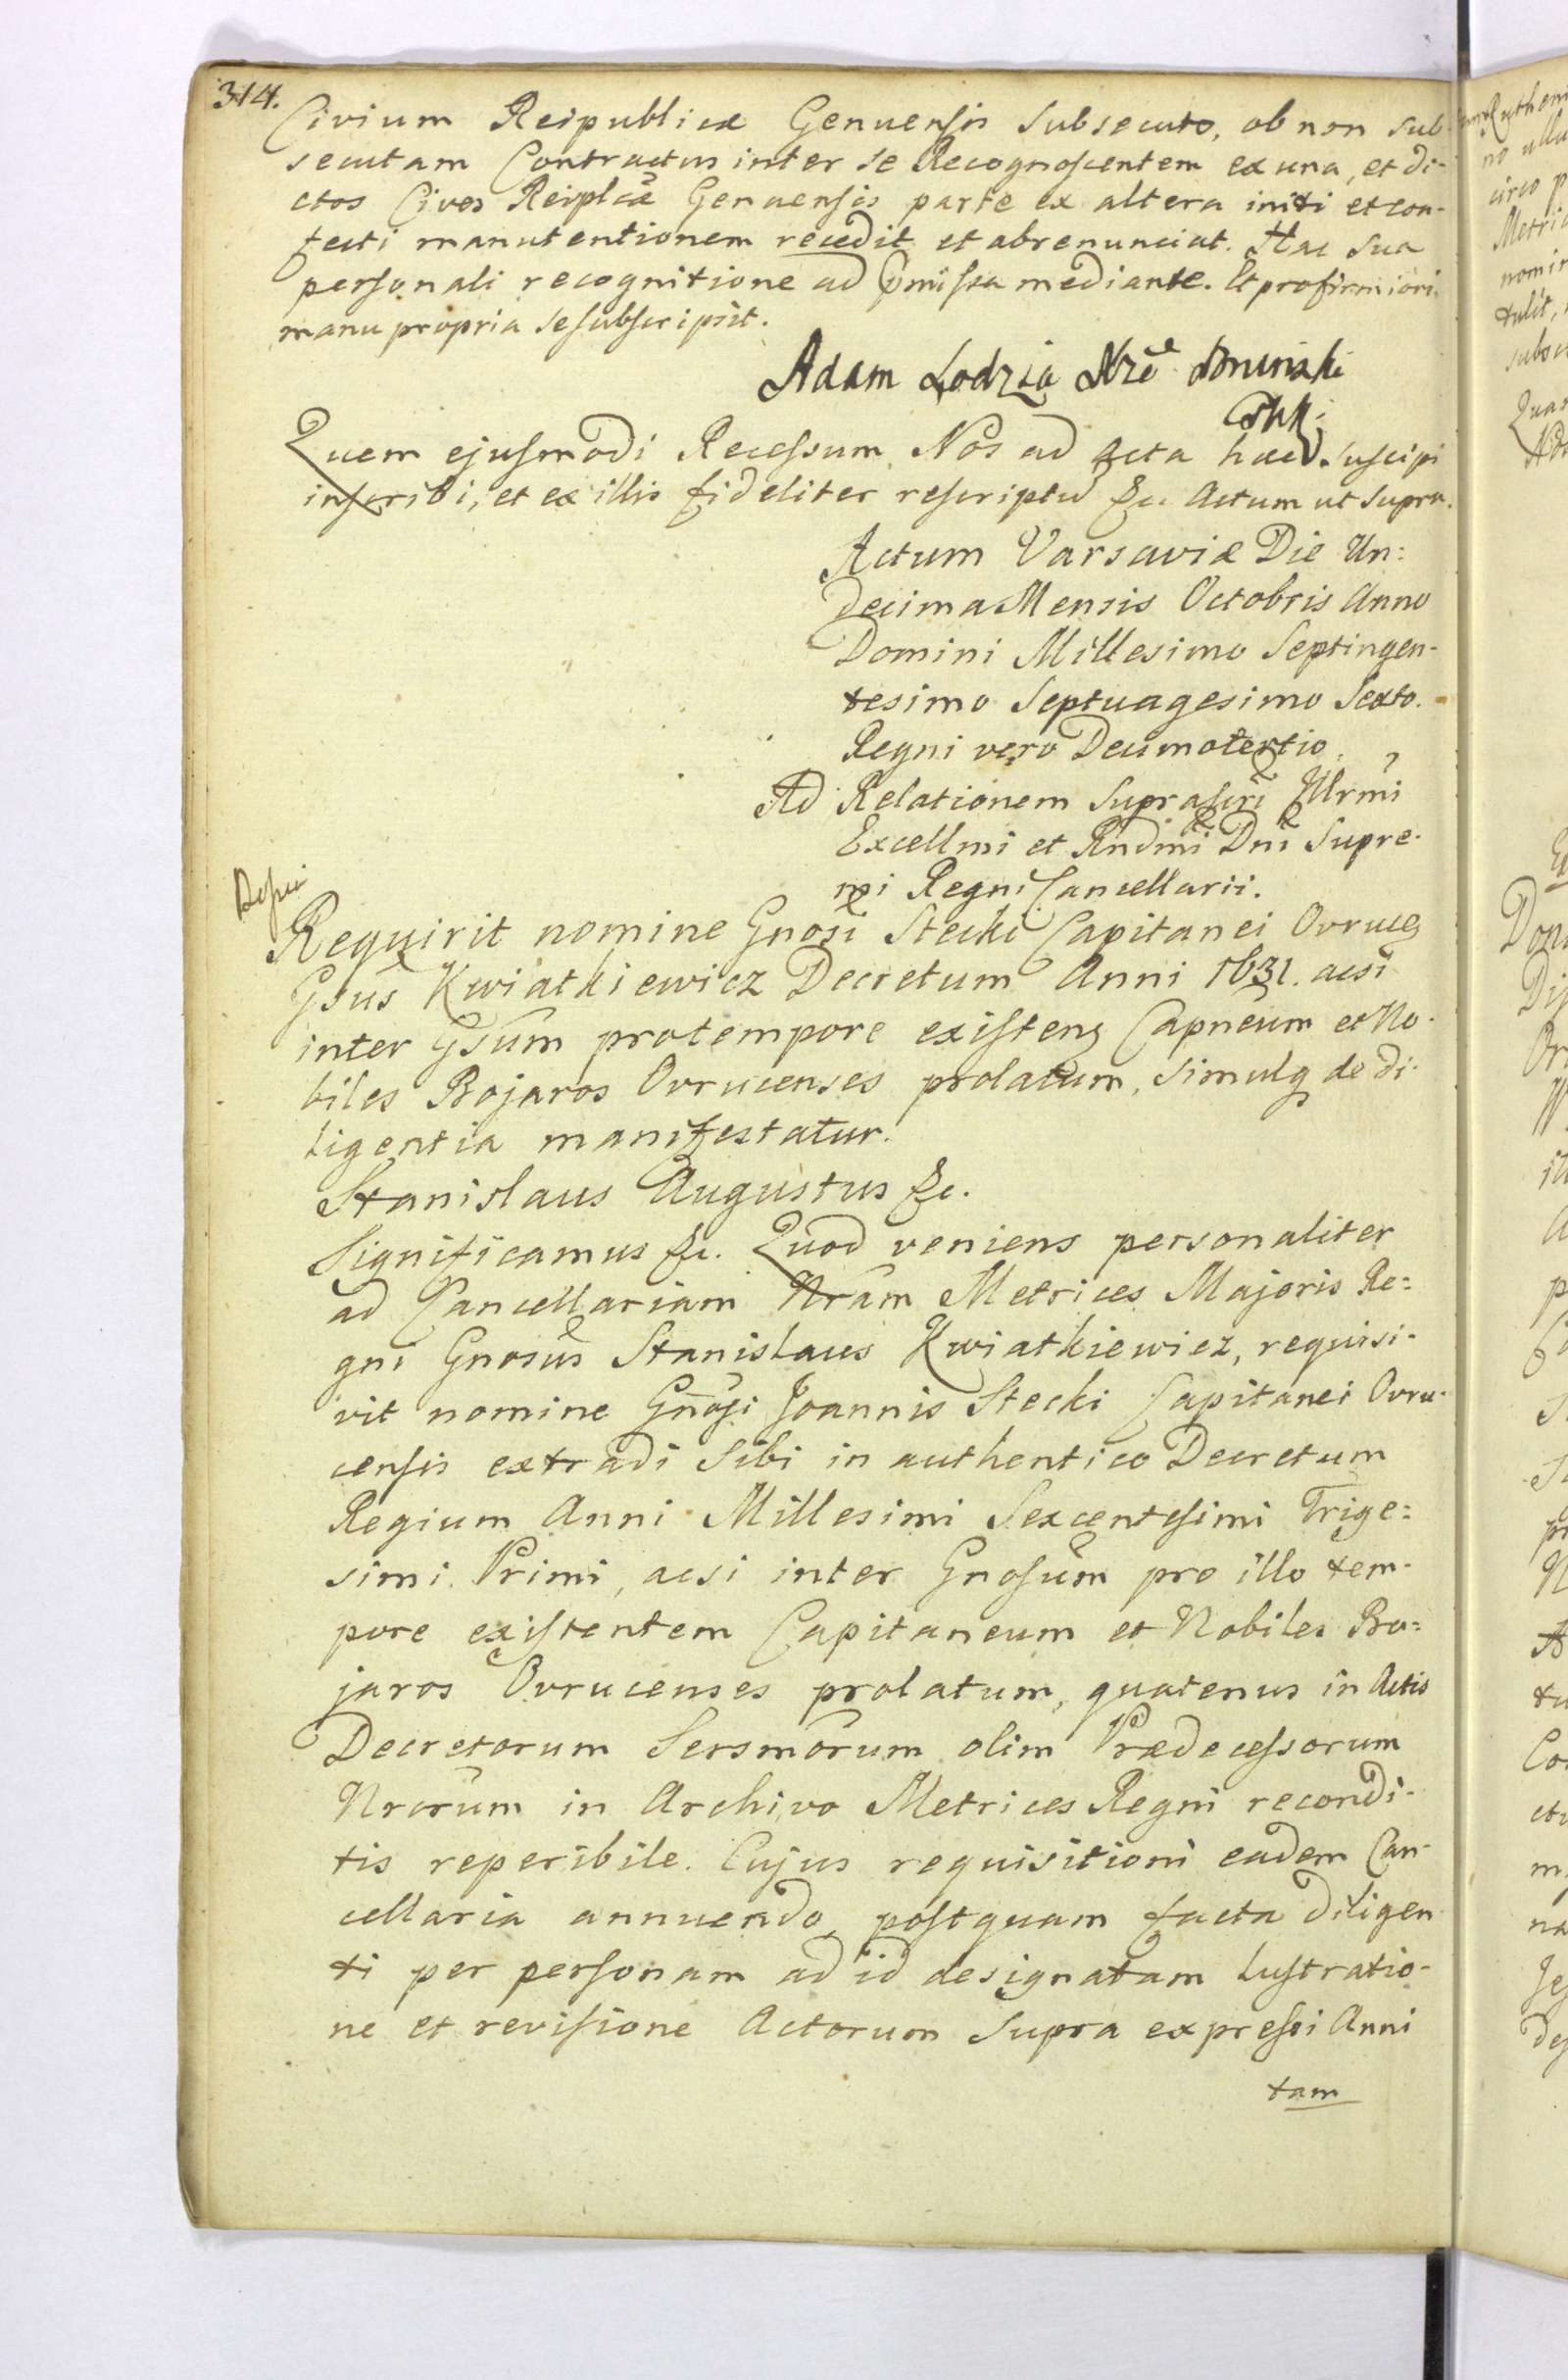 314.
Civium Reipublicæ Genuensis subsecuto, ob non sub-
secutam Contractus inter se Recognoscentem ex una, et di-
ctos Cives Reiplcæ Genuensis parte ex altera initi et con-
fecti manutentionem recedit et abrenunciat. Hac sua
personali recognitione ad pmissa mediante. Et pro firmiori
manu propria se subscripsit.
Adam Lodzia Xże Poninski
Quem ejusmodi Recessum Nos ad acta haec suscipi
inscribi, et ex illis fideliter rescriptū &c. Actum ut supra.
Actum Varsaviæ Die Un:
decima Mensis Octobris Anno
Domini Millesimo Septingen-
tesimo Septuagesimo Sexto.
Regni vero Decimotertio.
Ad Relationem suprascri Illrmi
Excellmi et Rndmi Dni Supre-
mi Regni Cancellarii.
Requirit nomine Gnosi Stecki Capitanei Ovruceñ
Gsus Kwiatkiewicz Decretum Anni 1631. acsi
inter Gsum pro tempore existeng Capneum et No-
biles Bojaros Ovrucenses prolatum, simulq de di-
ligentia manifestatur.
Stanislaus Augustus &c.
Significamus &c. Quod veniens personaliter
ad Cancellariam Nram Metrices Majoris Re=
gni Gnosus Stanislaus Kwiatkiewicz, requisi-
vit nomine Gnosi Joannis Stecki Capitanei Ovru-
censis extradi sibi in authentico Decretum
Regium Anni Millesimi Sexcentesimi Trige=
simi Primi, acsi inter Gnosum pro illo tem-
pore existentem Capitaneum et Nobiles Bo=
jaros Ovrucenses prolatum, quatenus in Actis
Decretorum Sersmorum olim Prædecessorum
Nrorum in Archivo Metrices Regni recondi-
tis reperibile. Cujus requisitioni eadem Can-
cellaria annuendo, postquam facta diligen
ti per personam ad id designatam lustratio-
ne et revisione Actorum supra expressi Anni
tam